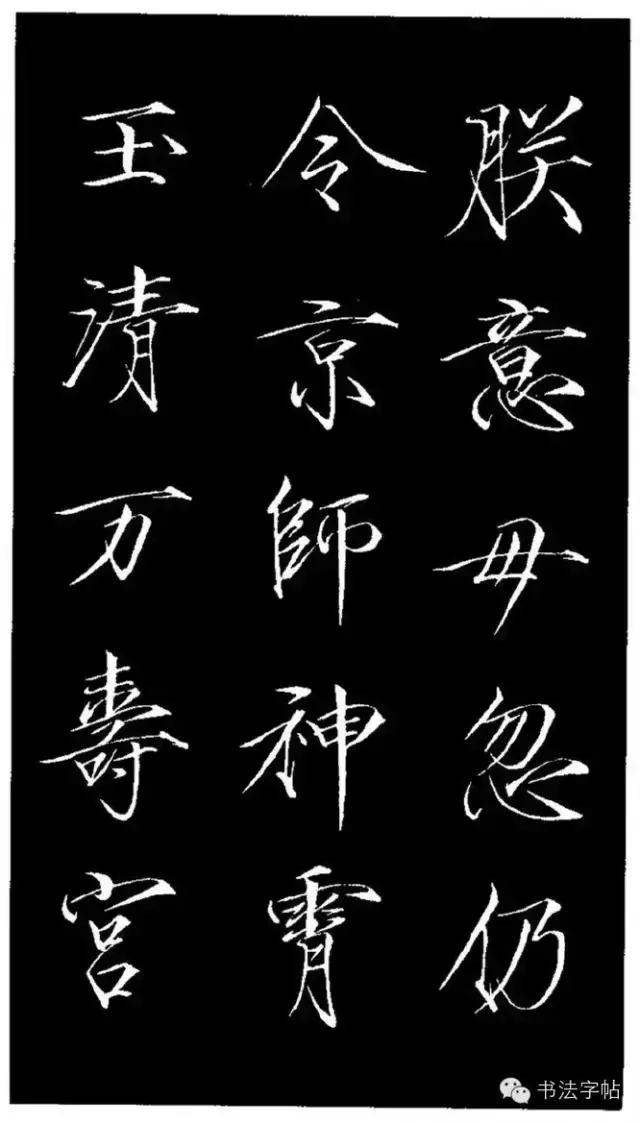 朕意毋忽仍
令京師神霄
玉清万壽宮
书法字帖